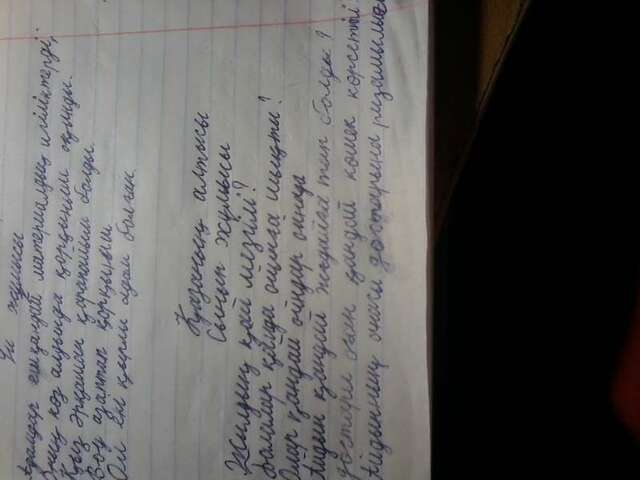 Үй жұмысы
Адамдар ешқандай материалдық игіліктерді,
Оның көз алдында қорқыныш
Қыз әрқашан қарапайым болды.
азаптап қорқыныш
Ол екі қырлы адам болған.
Қазанның алтысы
Сынып жұмысы
Жылдың қай мезгілі?
Балалар қайда ойынға шықты?
Олар қандай ойндар ойнады
Айдын қандай жағдайға тап болды?
достары оған қандай көмек көрсетті
Айдынның анасы достарына